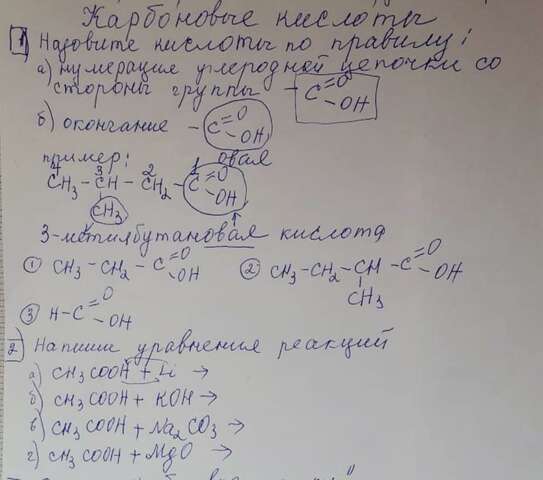 Карбоновые кислоты
1) Назовите кислоты по правилу:
а) нумерация углеродной цепочки со
стороны группы - C =O -OH
б) окончание - C =O -OH,
пример: овая
4 3 2 1
CH3 - CH - CH2 - C =O -OH
CH3
3-метилбутановая кислота
1 CH3 - CH2 - C =O -OH 2 CH3 - CH2 - CH - C =O -OH
CH3
3 H - C =O -OH
2) Напиши уравнения реакций
а) CH3COOH + Li →
б) CH3COOH + KOH →
в) CH3COOH + Na2CO3 →
г) CH3COOH + MgO →